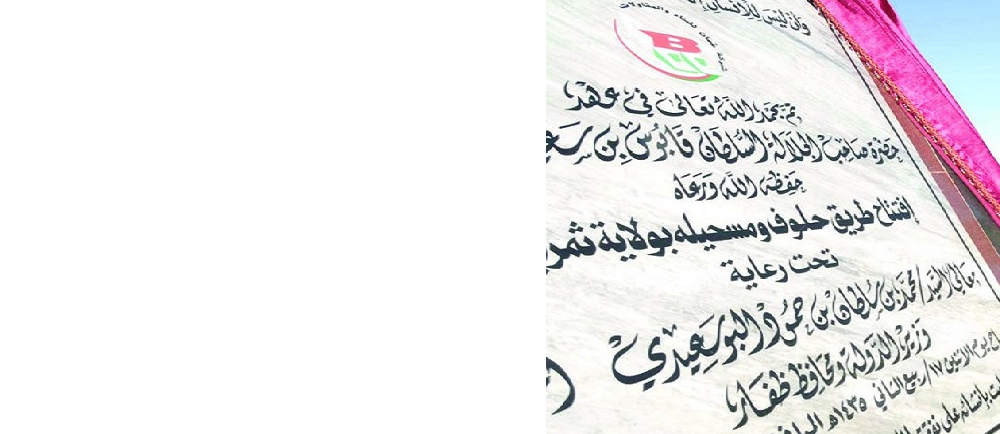 وأن ليس للإنسان
B
تم بحمد الله تعالى في عهد
حضرة صاحب الجلالة السلطان قابوس بن سعـ
حفظه الله ورعاه
إفتتاح طريق حلوف ومسحيله بولاية ثمر
تحت رعاية
معالي السيد/ محمد بن سلطان بن حمود البوسعيدي
وزير الدولة ومحافظ ظفار
يوم الاثنين ١٧/ ربيع الثاني ١٤٣٥هـ
بإنشائه على نفقة